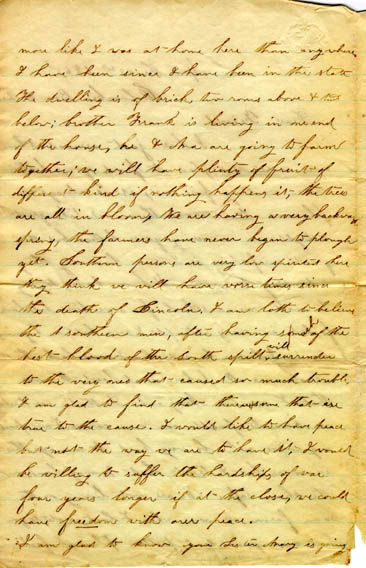 more like I was at home here than anywhere
I have been since I have been in the state
The dwelling is of brick, two rooms above & two
below; brother Frank is living in one end
of the house, he & Ma are going to farm
together; we will have plenty of fruit of
different kind if nothing happens it; the trees
are all in bloom, We are having a very backward
spring, the farmers have never began to plough
yet. Southern persons are very low spirited here
they think we will have worse times since
the death of Lincoln, I am loth to believe
the southern men, after having some of the
best blood of the South spilt, will surrender
to the very ones that caused so much trouble
I am glad to find that there are some that are
true to the cause. I would like to have peace
but not the way we are to have it; I would
be willing to suffer the hardships of war
four years longer if at the close, we could
have freedom with our peace.
I am glad to know your Sister is going